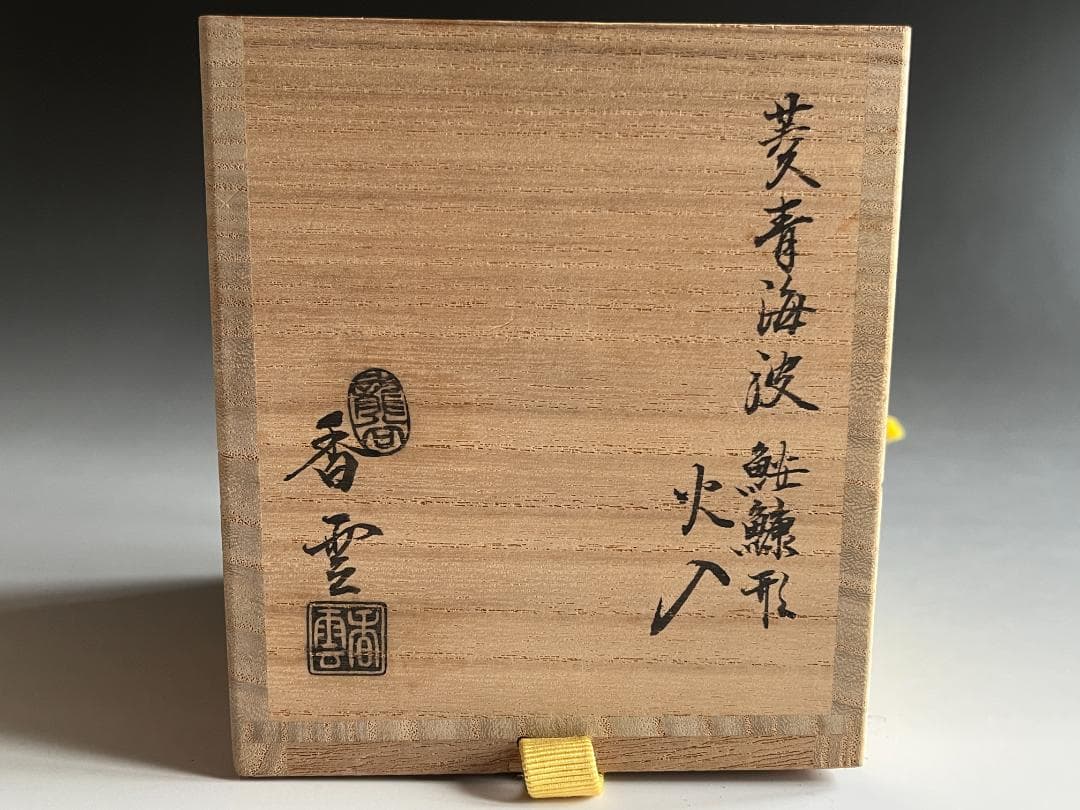 菱青海波
鮟鱇形
火入
龍谷
香雲
香雲